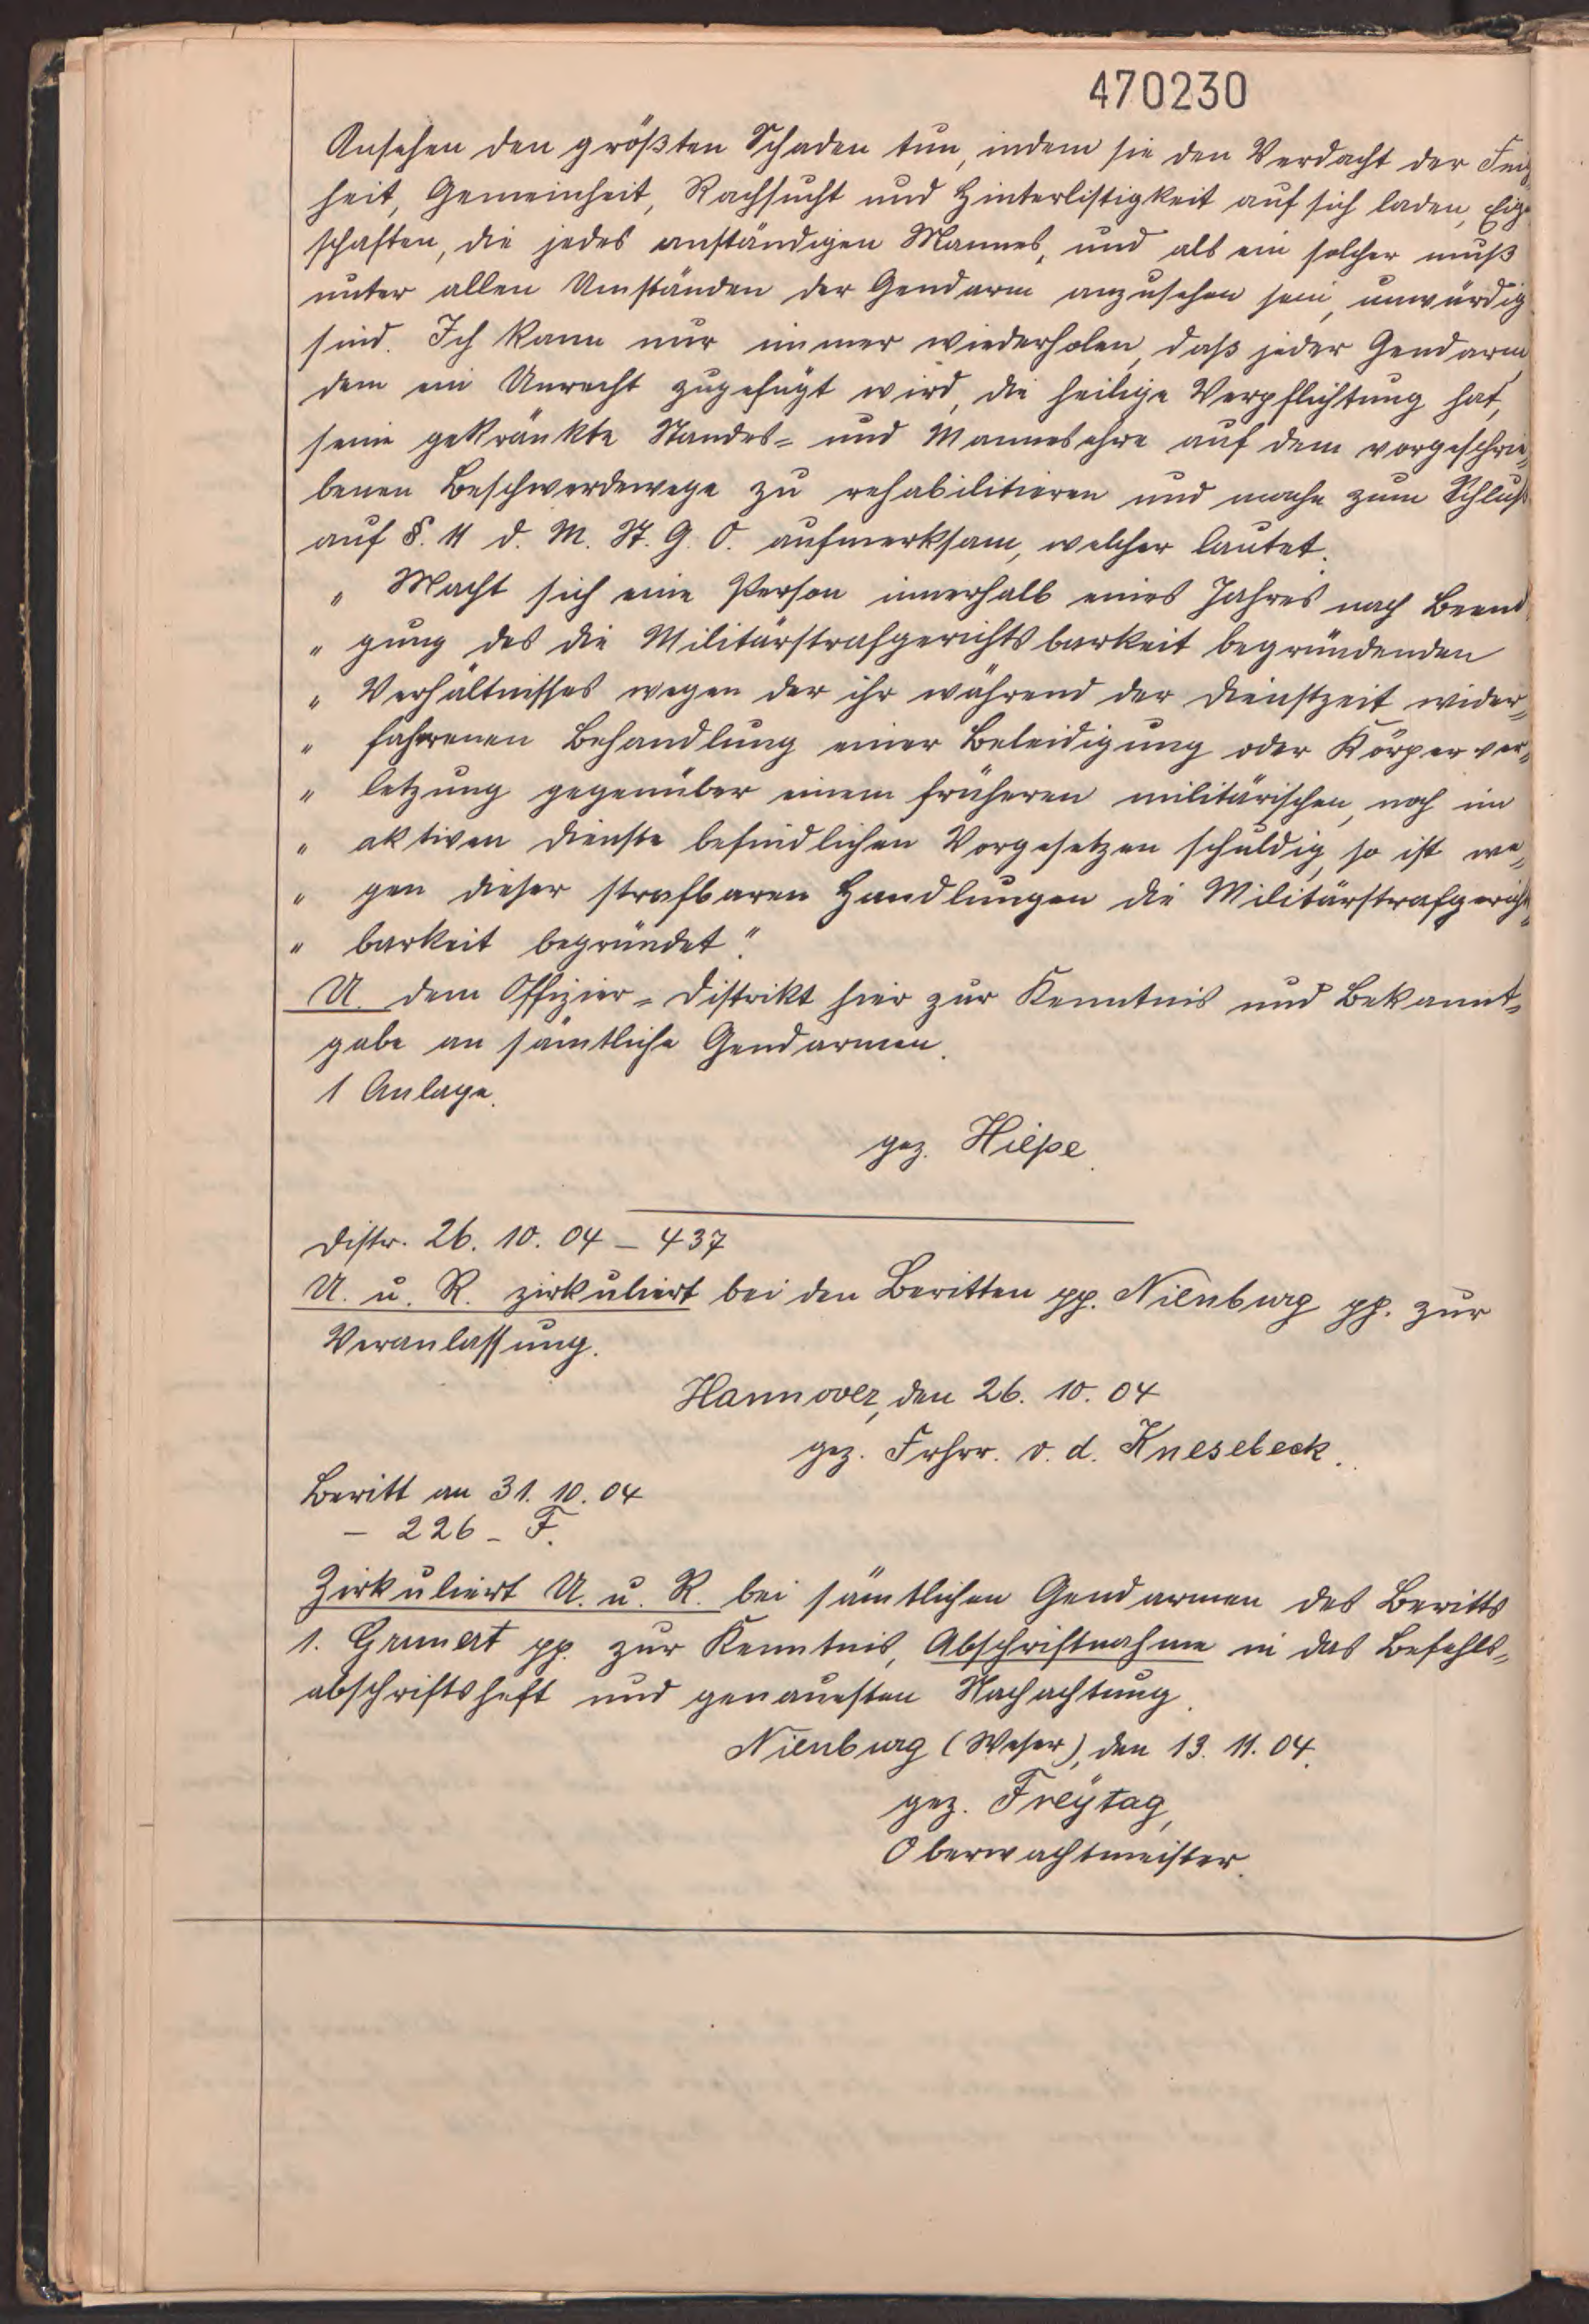 470230
Ansehen den größten Schaden tun, indem sie den Verdacht der Feig
heit, Gemeinheit, Rachsucht und Hinterlistigkeit auf sich laden, Eigen
schaften, die jedes anständigen Mannes, und als ein solcher muß
unter allen Umständen der Gendarm anzusehen sein, unwürdig
sind. Ich kann nur immer wiederholen, daß jeder Gendarm,
dem ein Unrecht zugefügt wird, die heilige Verpflichtung hat,
seine gekränkte Standes= und Mannesehre auf dem vorgeschrie=
benen Beschwerdewege zu rehabilitieren und mache zum Schluß
auf §. 11 d. M. St. G. O. aufmerksam, welcher lautet:
" Macht sich eine Person innerhalb eines Jahres nach Beendi
" gung des die Militärstrafgerichtsbarkeit begründenden
" Verhältnisses wegen der ihr während der Dienstzeit wider=
" fahrenen Behandlung einer Beleidigung oder Körperver=
" letzung gegenüber einem früheren militärischen, noch im
" aktiven Dienste befindlichen Vorgesetzen schuldig, so ist we=
" gen dieser strafbaren Handlungen die Militärstrafgerichts=
" barkeit begründet."
U. dem Offizier=Distrikt hier zur Kenntnis und Bekannt=
gabe an sämtliche Gendarmen.
1 Anlage.
gez. Hiepe.
Distr. 26. 10. 04 – 437
U. u. R. zirkuliert bei den Beritten pp. Nienburg pp. zur
Veranlassung.
Hannover, den 26. 10. 04
gez. Frhrr. v. d. Knesebeck.
Beritt an 31. 10. 04
– 226 – F.
Zirkuliert U. u. R. bei sämtlichen Gendarmen des Beritts
1. Grunert pp. zur Kenntnis, Abschriftnahme in das Befehls=
abschriftsheft und genauesten Nachachtung.
Nienburg (Weser), den 13. 11. 04.
gez. Freytag,
Oberwachtmeister.